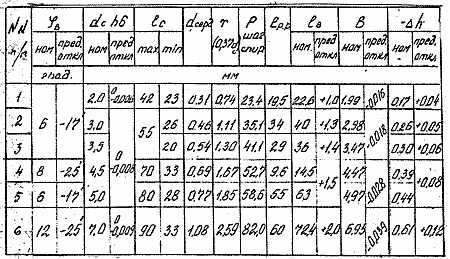 NN п/п | φв | dс h6 | ℓс | dсерд | r (0,37d) | P шаг спир. | ℓр.р | ℓв | B | -Δh
ном. | пред. откл | ном | пред. откл | max | min | ном. | пред. откл | ном | пред. откл | ном | пред. откл
град. | мм
1 | 6 | -17 | 2,0 | 0 -0,006 | 42 | 23 | 0,31 | 0,74 | 23,4 | 19,5 | 22,6 | +1,0 | 1,99 | -0,016 | 0,17 | +0,04
2 | 3,0 | 0 -0,008 | 55 | 26 | 0,46 | 1,11 | 35,1 | 34 | 40 | +1,3 | 2,98 | -0,018 | 0,26 | +0,05
3 | 3,5 | 20 | 0,54 | 1,30 | 41,1 | 29 | 36 | +1,4 | 3,47 | 0,30 | +0,06
4 | 8 | -25 | 4,5 | 70 | 33 | 0,69 | 1,67 | 52,7 | 9,6 | 14,5 | +1,5 | 4,47 | -0,028 | 0,39 | +0,08
5 | 6 | -17 | 5,0 | 80 | 28 | 0,77 | 1,85 | 58,6 | 55 | 63 | 4,97 | 0,44
6 | 12 | -25 | 7,0 | 0 -0,009 | 90 | 33 | 1,08 | 2,59 | 82,0 | 60 | 72,4 | +2,0 | 6,95 | -0,039 | 0,61 | +0,12